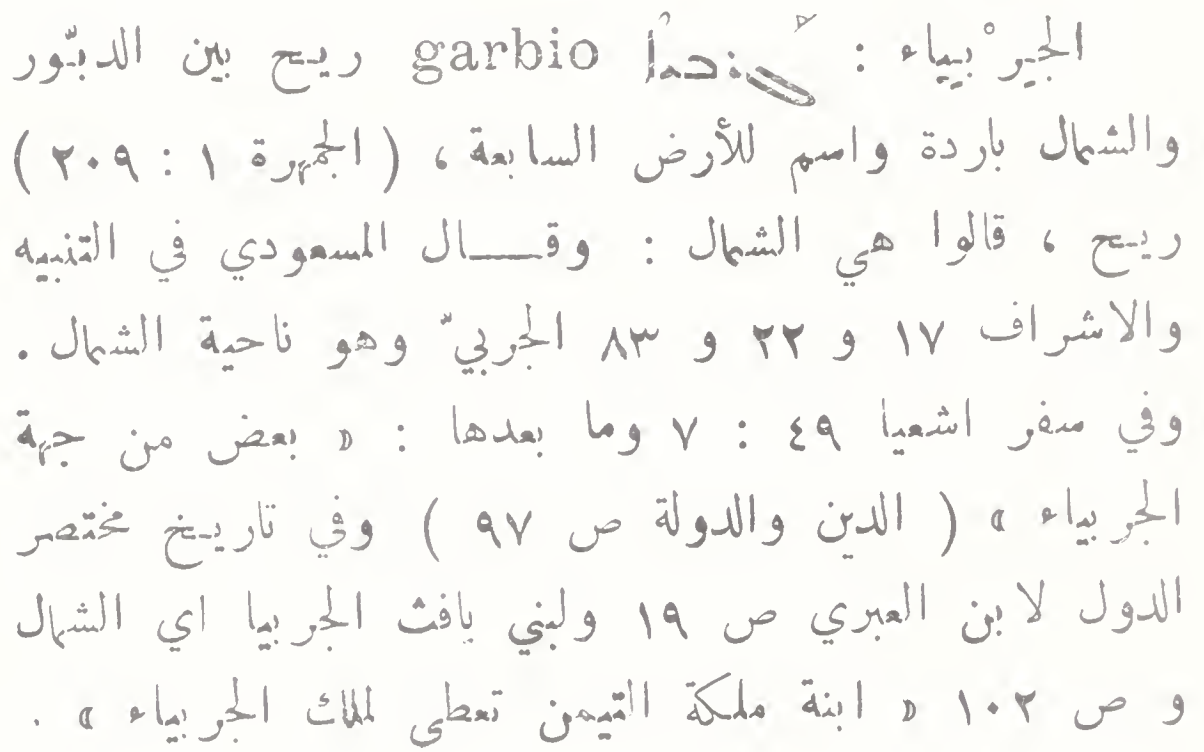 الجِرْبِياء : ܓܰܪܒܝܳܐ garbio ريح بين الدبّور
والشمال باردة واسم للأرض السابعة ، ( الجمهرة ١ : ٢٠٩ )
ريح ، قالوا هي الشمال : وقـــال المسعودي في التنبيه
والاشراف ١٧ و ٢٢ و ٨٣ الجربيّ وهو ناحية الشمال .
وفي سفر اشعيا ٤٩ : ٧ وما بعدها : « بعض من جهة
الجربياء » ( الدين والدولة ص ٩٧ ) وفي تاريخ مختصر
الدول لابن العبري ص ١٩ ولبني يافث الجربيا اي الشمال
و ص ١٠٢ « ابنة ملكة التيمن تعطى لملك الجربياء » .